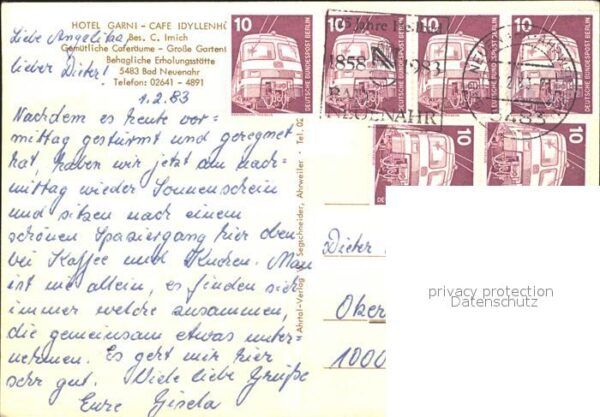 HOTEL GARNI - CAFE IDYLLENHÖ
Bes. C. Imich
Gemütliche Caferäume - Große Garten
Behagliche Erholungsstätte
5483 Bad Neuenahr
Telefon: 02641 - 4891
Liebe Angelika,
lieber Dieter!
1.2.83
Nachdem es heute vor-
mittag gestürmt und geregnet
hat, haben wir jetzt am nach-
mittag wieder Sonnenschein
und sitzen nach einem
schönen Spaziergang hier oben
bei Kaffee und Kuchen. Man
ist nie allein, es finden sich
immer welche zusammen,
die gemeinsam etwas unter-
nehmen. Es geht mir hier
sehr gut. Viele liebe Grüße
Eure Gisela
Ahrtal-Verlag Segschneider, Ahrweiler · Tel. 02
10
10
10
10
10
10
10
DEUTSCHE BUNDESPOST BERLIN
DEUTSCHE BUNDESPOST BERLIN
DEUTSCHE BUNDESPOST BERLIN
DEUTSCHE BUNDESPOST BERLIN
DEUTSCHE BUNDESPOST BERLIN
Jahre
1858 1983
BAD
NEUENAHR
5483
Dieter
Ober
1000
privacy protection
Datenschutz